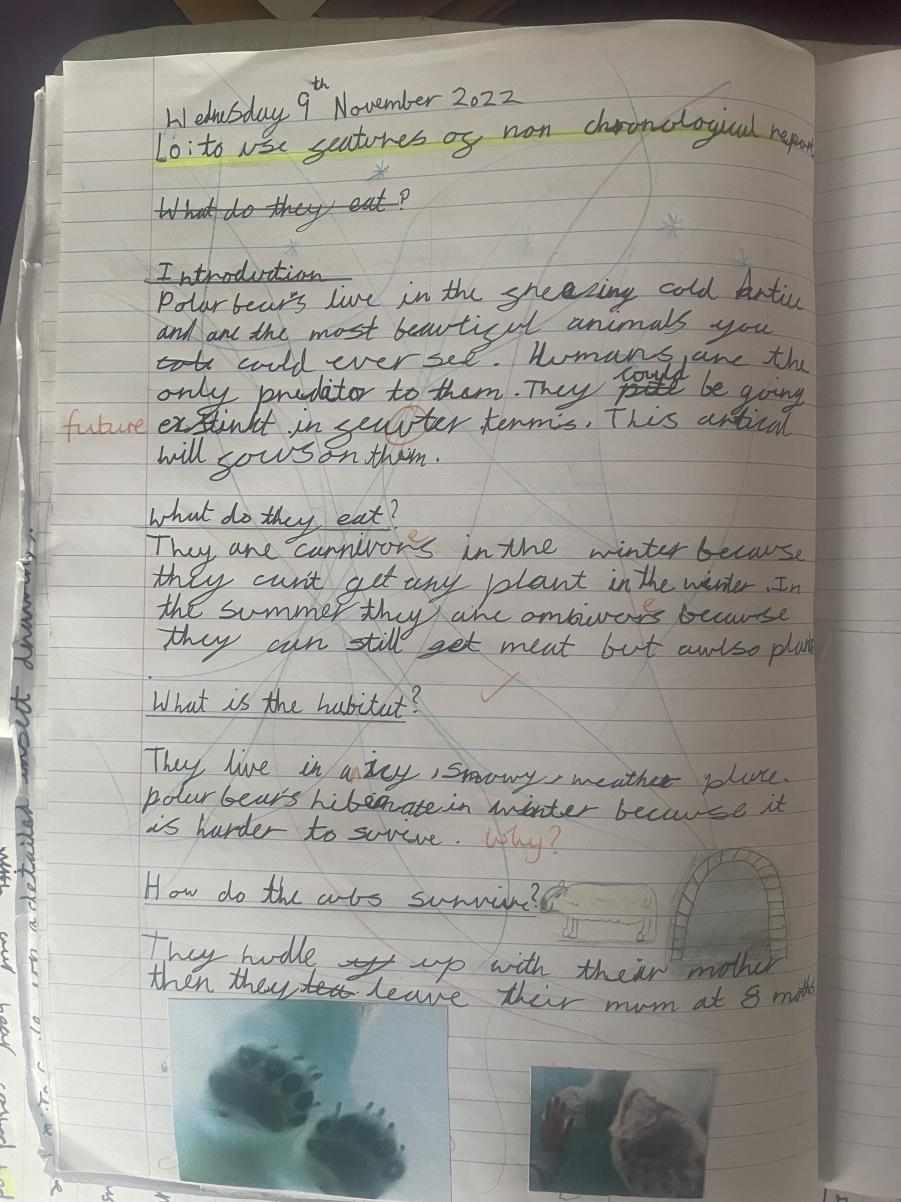 Wednesday 9th November 2022
Lo: to use features of non chronological report
What do they eat?
Introdution
Polar bear's live in the freazing cold Artic
and are the most beautiful animals you
could ever see. Humans are the
only predator to them. They could be going
future exstinkt in feuuter termis. This artical
will fows on them.
What do they eat?
They are carnivores in the winter because
they can't get any plant in the winter. In
the summer they are ombivores because
they can still get meat but awlso plants
.
What is the habitat?
They live in an icy, snowy, weather place.
polar bear's hibernate in winter because it
is harder to survive. Why?
How do the cubs survive?
They hudle up with their mother
then they leave their mum at 8 moths
a detailed insect drawing.